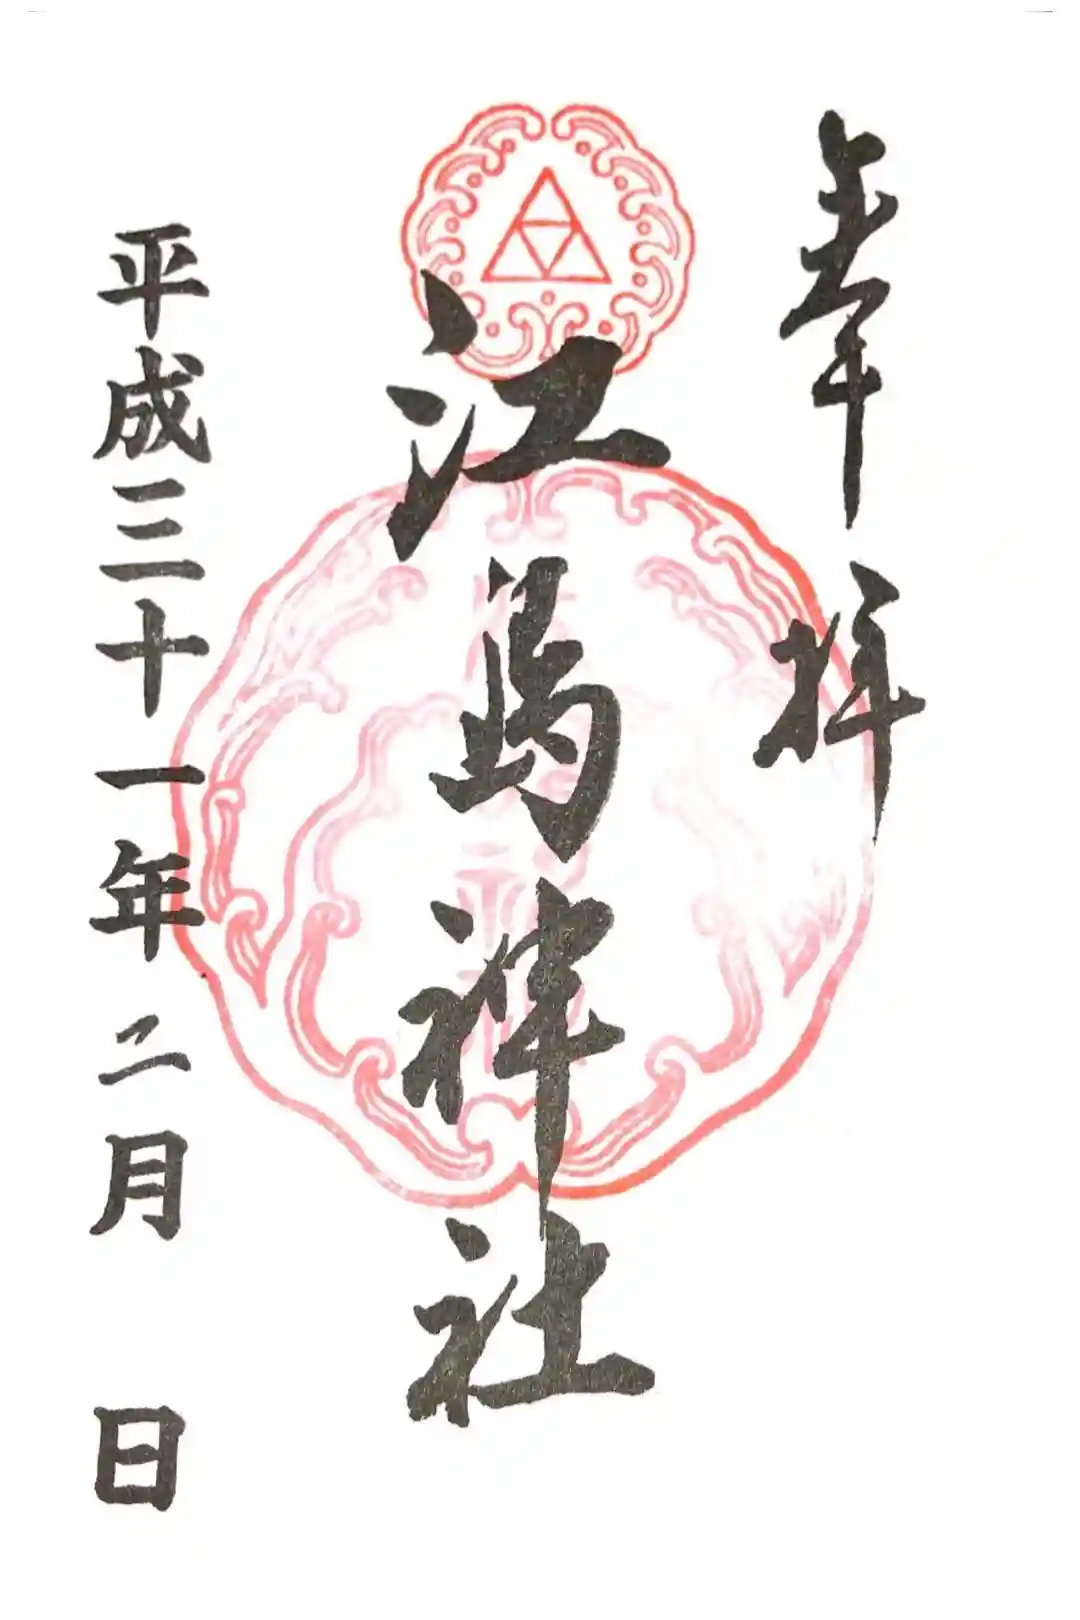 奉拝
江馬神社
平成三十一年二月 日